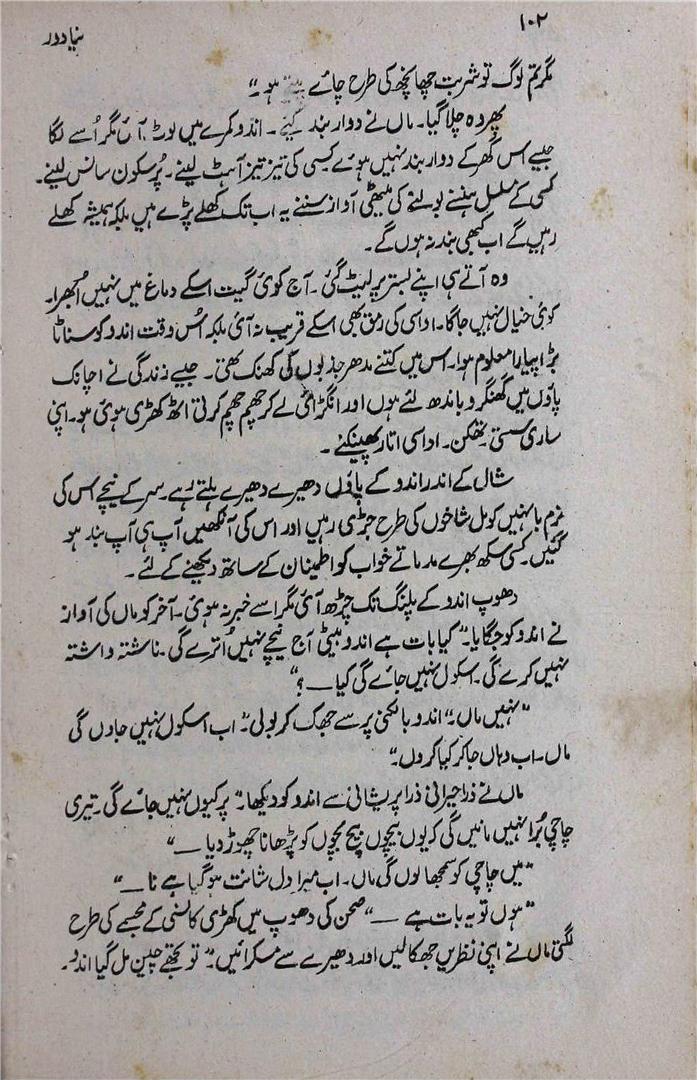 ۱۰۲
نیا دور
مگر تم لوگ تو شربت چھاچھ کی طرح چائے پیتے ہو۔"
پھر وہ چلا گیا۔ ماں نے دوار بند کیے۔ اندو کمرے میں لوٹ آئی مگر اُسے لگا
جیسے اس گھر کے دوار بند نہیں ہوئے کسی کی تیز تیز آہٹ لینے۔ پُرسکون سانس لینے۔
کسی کے مسلسل ہنسنے بولنے کی میٹھی آواز سننے یہ اب تک کھلے پڑے ہیں بلکہ ہمیشہ کھلے
رہیں گے اب کبھی بند نہ ہوں گے۔
وہ آتے ہی اپنے بستر پر لیٹ گئی۔ آج کوئی گیت اسکے دماغ میں نہیں اُبھرا۔
کوئی خیال نہیں جاگا۔ اداسی کی رمق بھی اسکے قریب نہ آئی بلکہ اُس وقت اندو کو سناٹا
بڑا پیارا معلوم ہوا۔ اس میں کتنے مدھر جذبوں کی کھنک تھی۔ جیسے زندگی نے اچانک
پاؤں میں گھنگرو باندھ لئے ہوں اور انگڑائی لے کر چھم چھم کرتی اٹھ کھڑی ہوئی ہو۔ اپنی
ساری سستی۔ تھکن۔ اداسی اتار پھینکنے۔
شال کے اندر اندو کے پاؤں دھیرے دھیرے ہلتے رہے۔ سر کے نیچے اس کی
نرم بانہیں کومل شاخوں کی طرح جڑی رہیں اور اس کی آنکھیں آپ ہی آپ بند ہو
گئیں۔ کسی سکھ بھرے مدماتے خواب کو اطمینان کے ساتھ دیکھنے کے لئے۔
دھوپ اندو کے پلنگ تک چڑھ آئی مگر اسے خبر نہ ہوئی۔ آخر کو ماں کی آواز
نے اندو کو جگایا۔" کیا بات ہے اندو بیٹی آج نیچے نہیں اُترے گی۔ ناشتہ واشتہ
نہیں کرے گی۔ اسکول نہیں جائے گی کیا ــــ ؟"
"نہیں ماں۔" اندو بالکنی پر سے جھک کر بولی۔" اب اسکول نہیں جاؤں گی
ماں۔ اب وہاں جا کر کیا کروں۔"
ماں نے ذرا حیرانی ذرا پریشانی سے اندو کو دیکھا۔" پر کیوں نہیں جائے گی۔ تیری
چاچی بُرا نہیں مانیں گی کہ یوں بیچوں بیچ بچوں کو پڑھانا چھوڑ دیا ــــ "
"میں چاچی کو سمجھا لوں گی ماں۔ اب میرا دل شانت ہو گیا ہے نا ــــ "
"ہوں تو یہ بات ہے ــــ " صحن کی دھوپ میں کھڑی کانسی کے مجسمے کی طرح
لگتی ماں نے اپنی نظریں جھکا لیں اور دھیرے سے مسکرائیں۔" تو تجھے چین مل گیا اندو۔